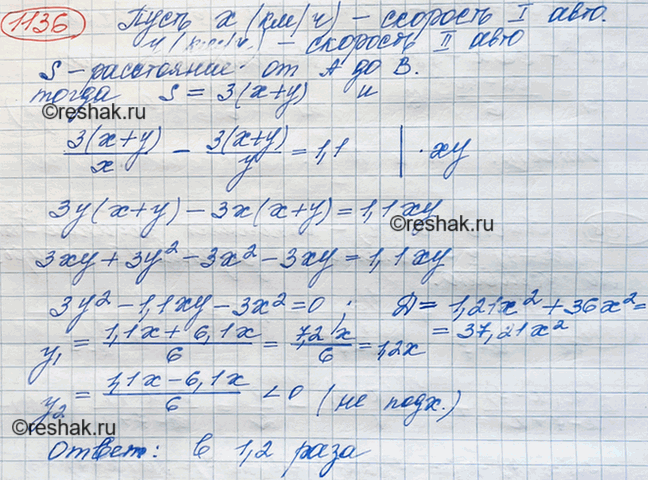 1136 Пусть x (км/ч) – скорость I авто.
y (км/ч) – скорость II авто
S – расстояние от A до B.
тогда S = 3(x+y) и
3(x+y)/x – 3(x+y)/y = 1,1 | · xy
©reshak.ru
3y(x+y) – 3x(x+y) = 1,1xy
©reshak.ru
3xy + 3y² – 3x² – 3xy = 1,1xy
3y² – 1,1xy – 3x² = 0 ; Д = 1,21x² + 36x² =
= 37,21x²
y₁ = (1,1x + 6,1x)/6 = 7,2x/6 = 1,2x
©reshak.ru
y₂ = (1,1x – 6,1x)/6 < 0 (не подх.)
©reshak.ru
©reshak.ru
Ответ: в 1,2 раза